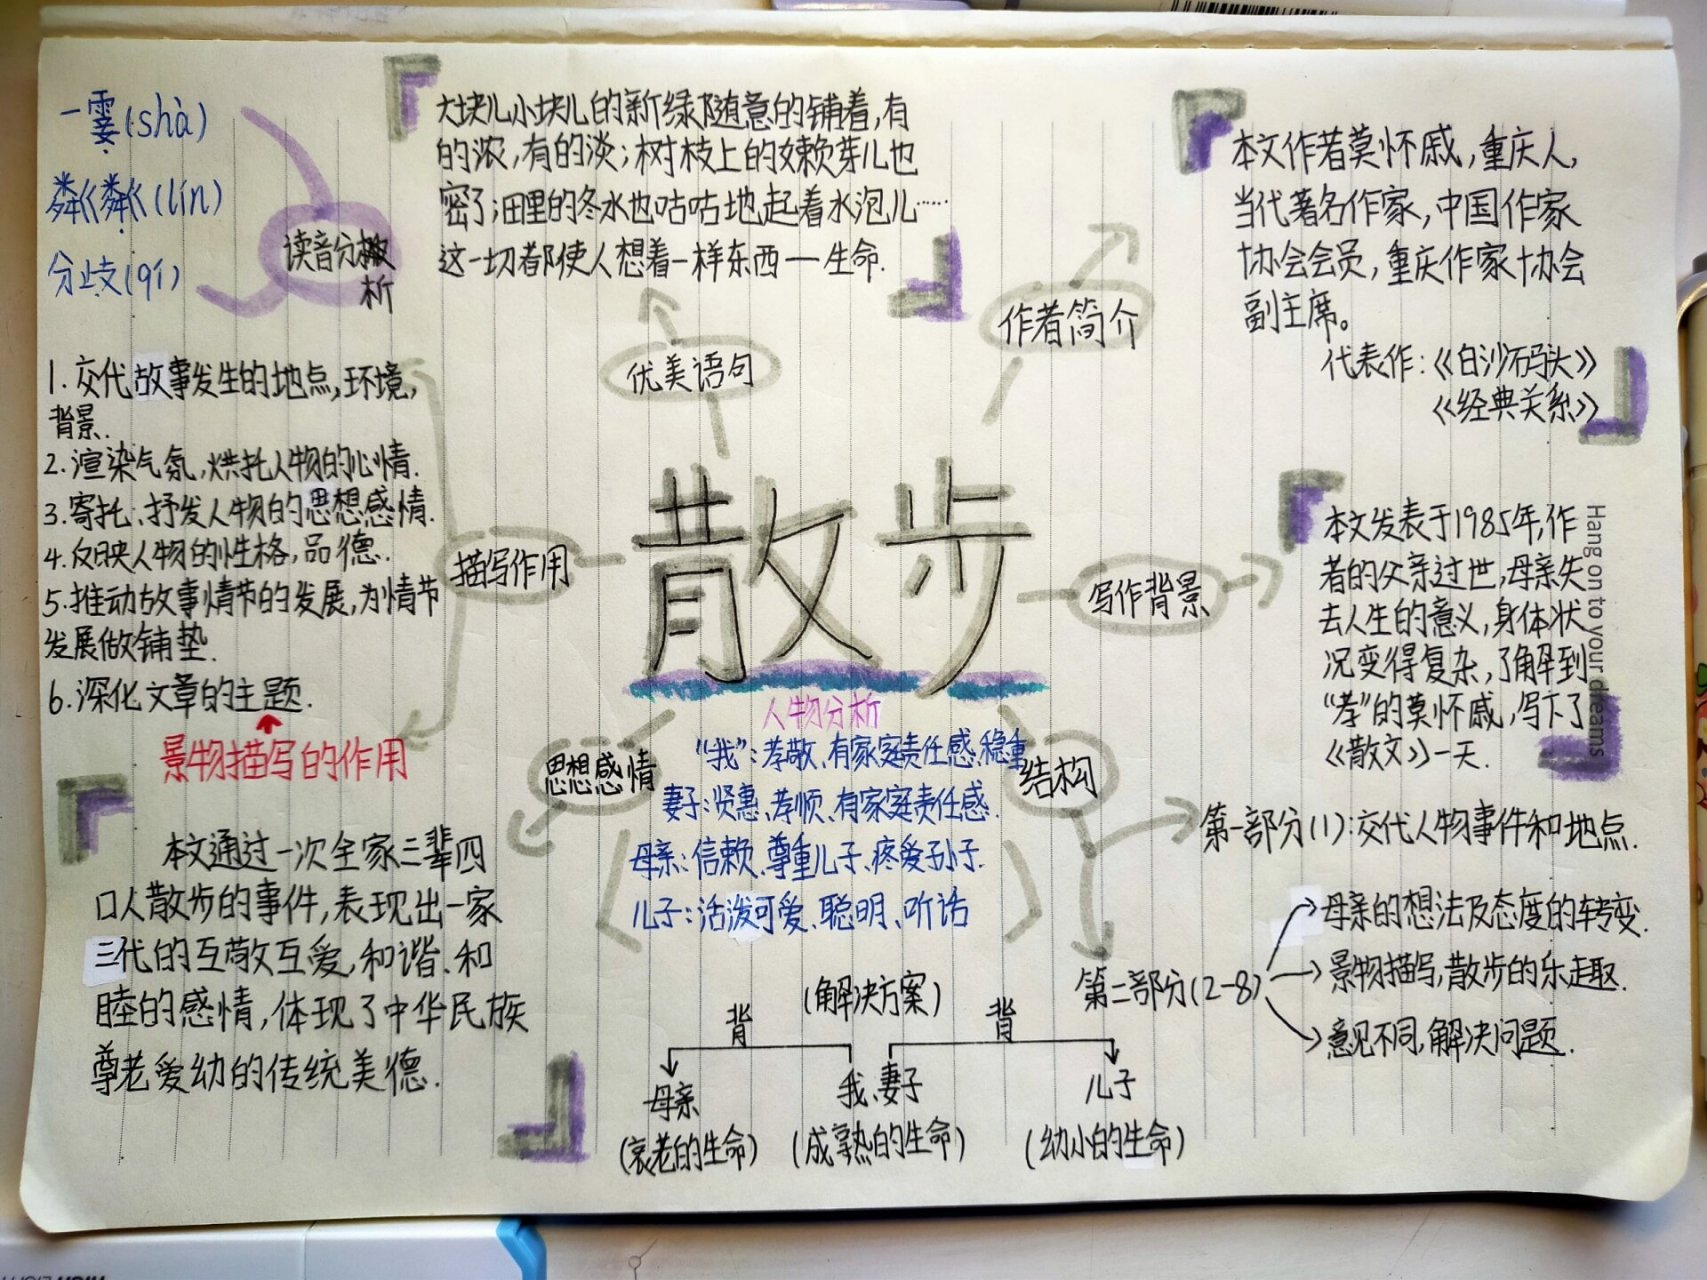 一霎(shà)
粼粼(lín)
分歧(qí)
读音分
析
大块儿小块儿的新绿随意的铺着,有
的浓,有的淡;树枝上的嫩芽儿也
密了;田里的冬水也咕咕地起着水泡儿……
这一切都使人想着一样东西一生命.
优美语句
作者简介
本文作者莫怀戚,重庆人,
当代著名作家,中国作家
协会会员,重庆作家协会
副主席。
代表作:《白沙码头》
《经典关系》
1.交代故事发生的地点,环境,
背景.
2.渲染气氛,烘托人物的心情.
3.寄托、抒发人物的思想感情.
4.反映人物的性格,品德.
5.推动故事情节的发展,为情节
发展做铺垫.
6.深化文章的主题.
景物描写的作用
描写作用
散步
写作背景
本文发表于1985年,作
者的父亲过世,母亲失
去人生的意义,身体状
况变得复杂,了解到
“孝”的莫怀戚,写下了
《散文》一天.
Hang on to your dreams
思想感情
本文通过一次全家三辈四
口人散步的事件,表现出一家
三代的互敬互爱,和谐、和
睦的感情,体现了中华民族
尊老爱幼的传统美德.
人物分析
“我”:孝敬、有家庭责任感、稳重
妻子:贤惠、孝顺、有家庭责任感.
母亲:信赖、尊重儿子、疼爱孙子.
儿子:活泼可爱、聪明、听话
结构
第一部分(1):交代人物事件和地点.
第二部分(2-8)
母亲的想法及态度的转变.
景物描写,散步的乐趣.
意见不同,解决问题.
(解决方案)
背
背
母亲
我、妻子
儿子
(衰老的生命)
(成熟的生命)
(幼小的生命)